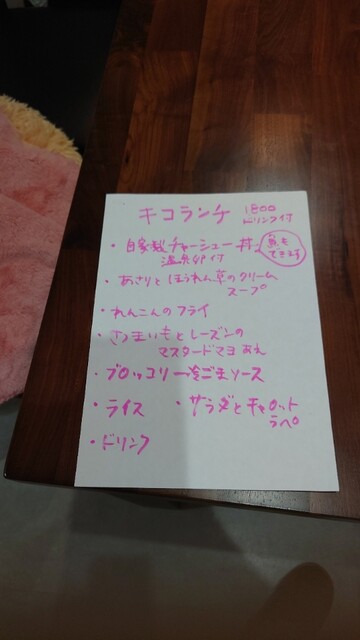 キコランチ 1800
ドリンク付
・自家製チャーシュー丼 魚も
できます
温泉卵付
・あさりとほうれん草のクリーム
スープ
・れんこんのフライ
・さつまいもとレーズンの
マスタードマヨあえ
・ブロッコリー 冷ごまソース
・ライス ・サラダとキャロット
ラペ
・ドリンク